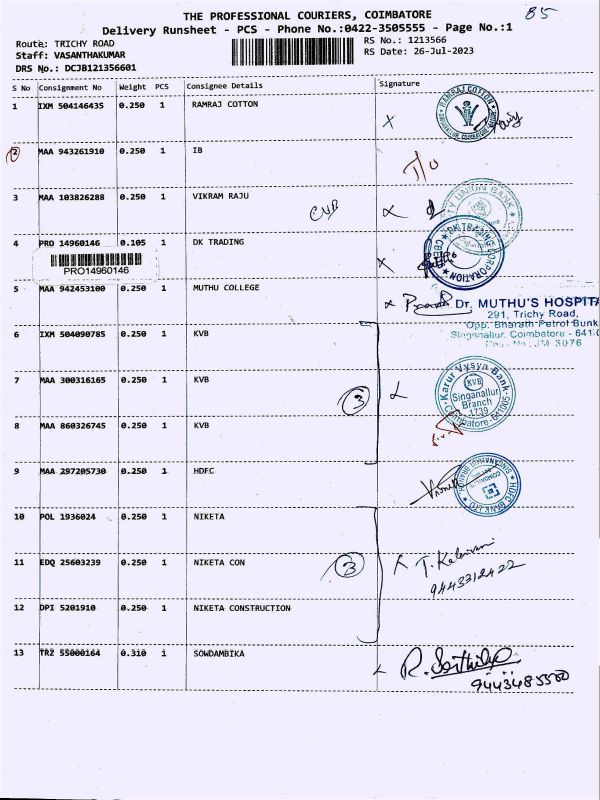 THE PROFESSIONAL COURIERS, COIMBATORE
85
Delivery Runsheet - PCS - Phone No.:0422-3505555 - Page No.:1
Route: TRICHY ROAD
RS No.: 1213566
Staff: VASANTHAKUMAR
RS Date: 26-Jul-2023
DRS No.: DCJB121356601
S No Consignment No Weight PCS Consignee Details Signature
1 IXM 504146435 0.250 1 RAMRAJ COTTON
RAMRAJ COTTON
2 MAA 943261910 0.250 1 IB
3 MAA 103826288 0.250 1 VIKRAM RAJU
CUB
4 PRO 14960146 0.105 1 DK TRADING
PRO14960146
5 MAA 942453100 0.250 1 MUTHU COLLEGE
Dr. MUTHU'S HOSPITA
291, Trichy Road,
Opp. Bharath Petrol Bunk
Singanallur, Coimbatore - 641
6 IXM 504090785 0.250 1 KVB
7 MAA 300316165 0.250 1 KVB
3
Karur Vysya Bank
KVB
Singanallur
Branch
1739
Coimbatore-641005
8 MAA 860326745 0.250 1 KVB
9 MAA 297205730 0.250 1 HDFC
HDFC BANK LTD
10 POL 1936024 0.250 1 NIKETA
11 EDQ 25603239 0.250 1 NIKETA CON
3
9443312422
12 DPI 5201910 0.250 1 NIKETA CONSTRUCTION
13 TRZ 55000164 0.310 1 SOWDAMBIKA
9443485550